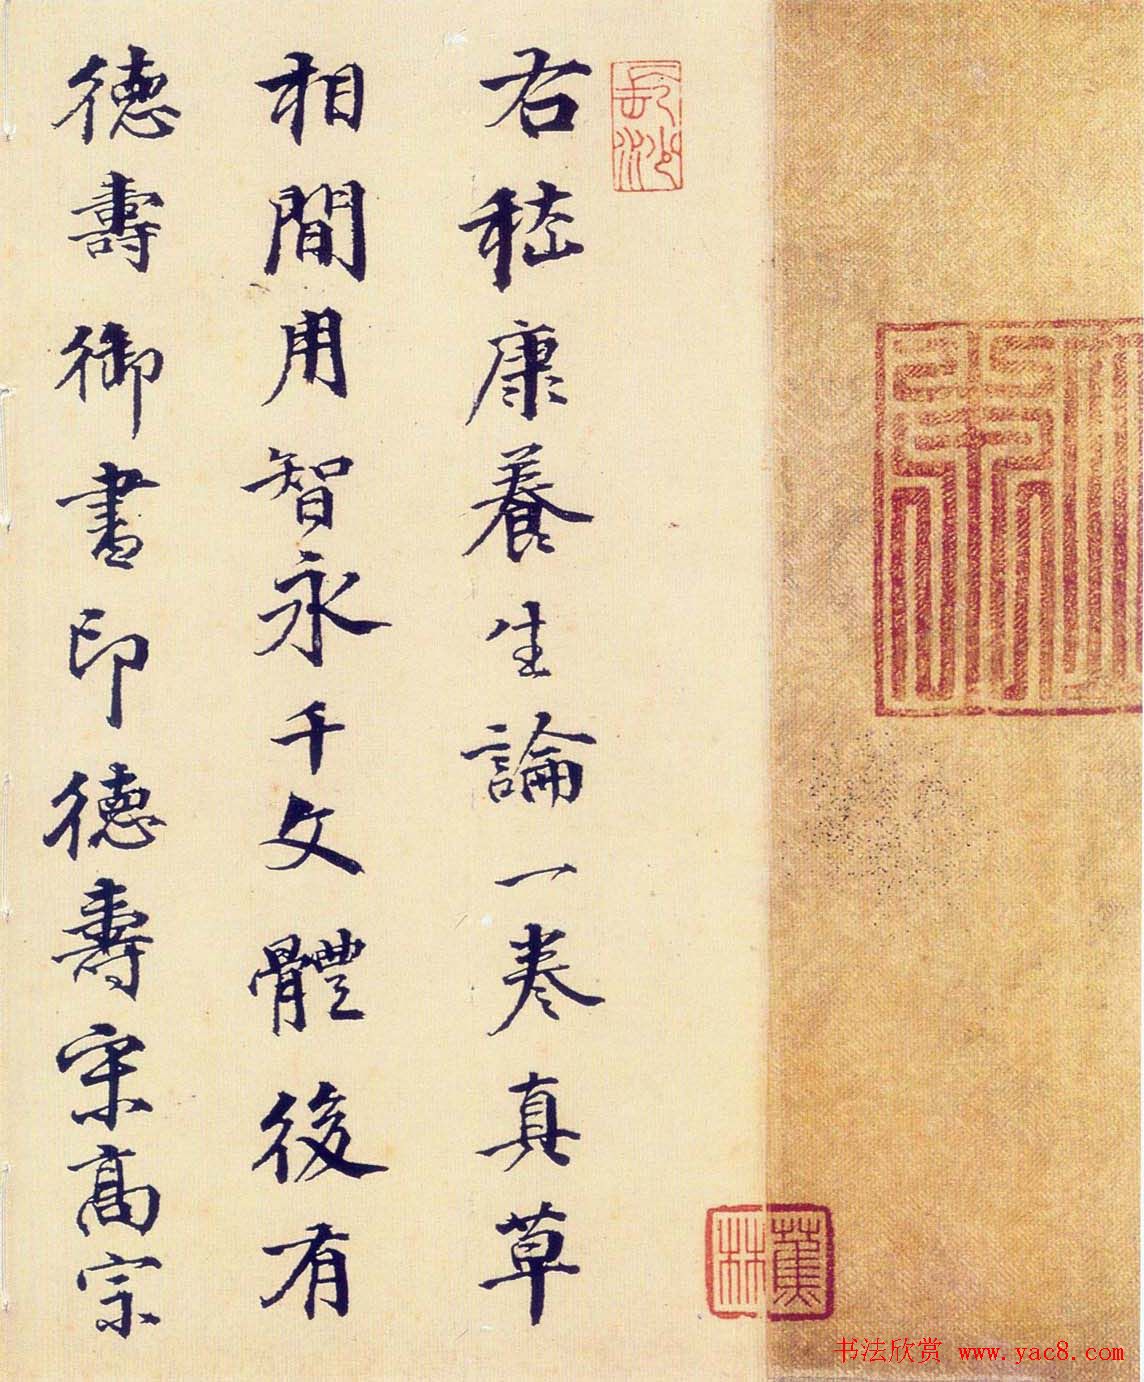 右嵇康養生論一卷真草
相間用智永千文體後有
德壽御書印德壽宋高宗
長沙
蕉林
书法欣赏 www.yac8.com